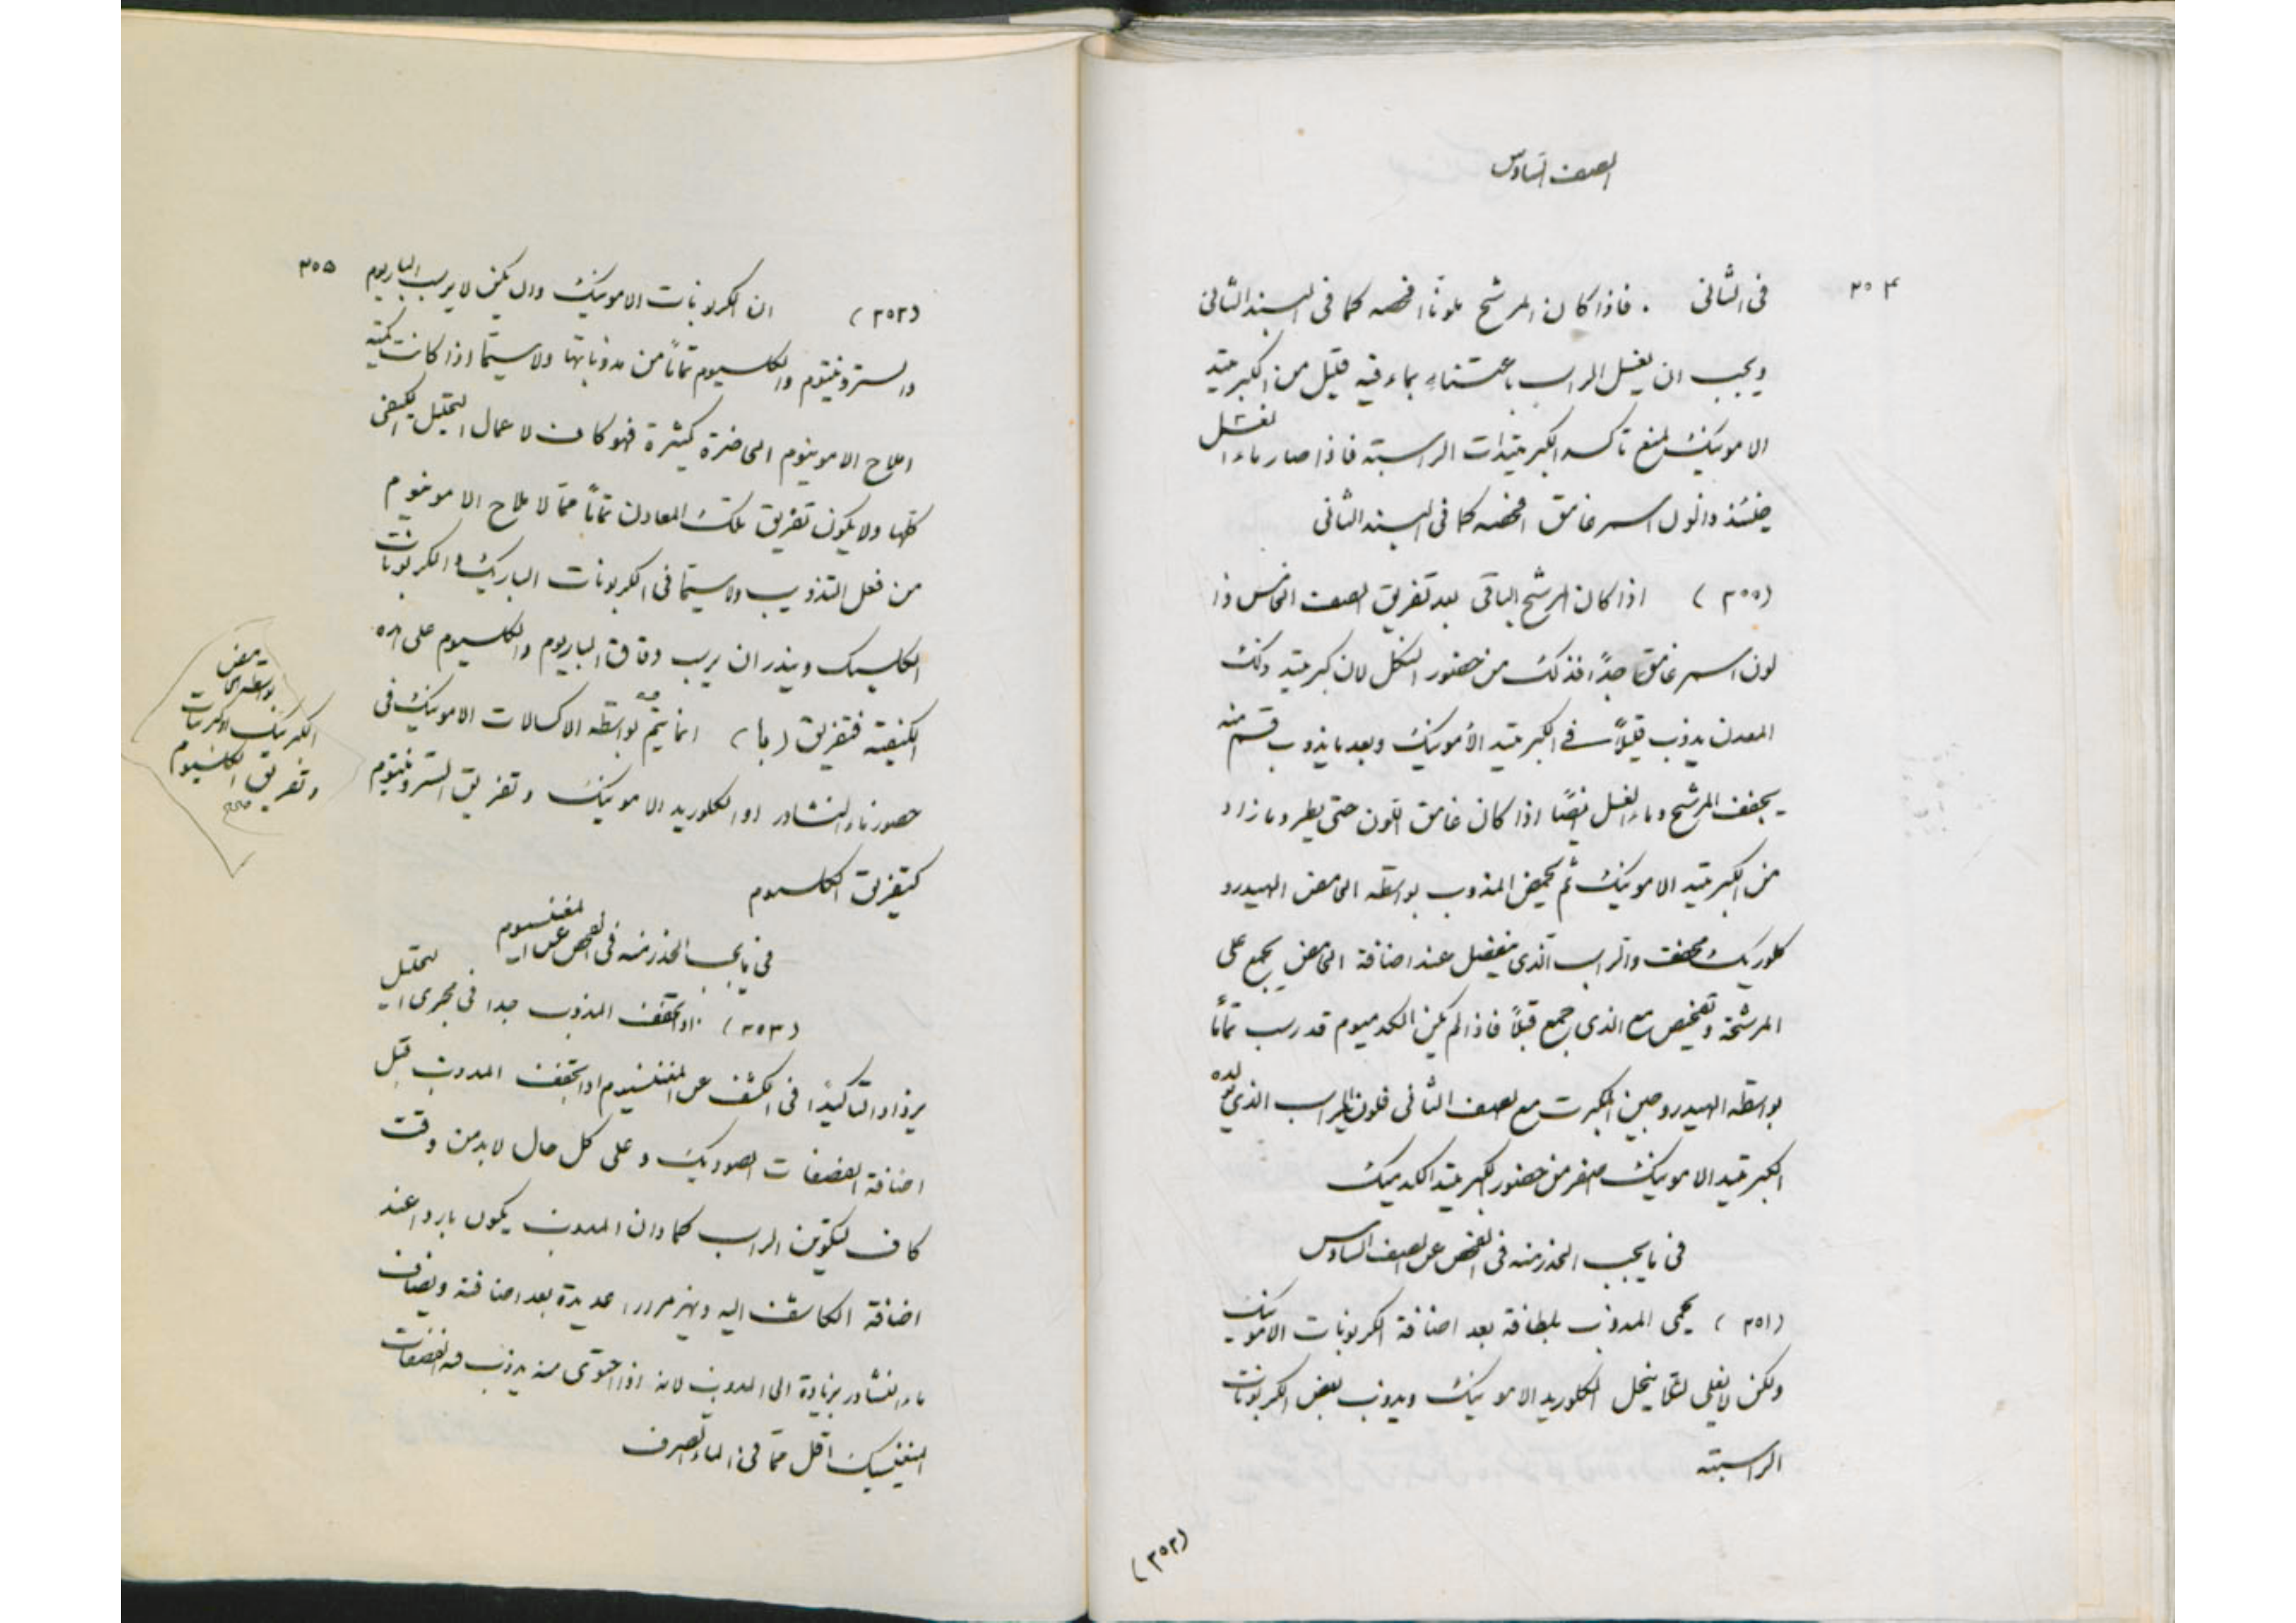 الصف السادس
٣٠٤
فى الثانى . فاذا كان المرشح ملونا افحصه كما فى البند الثانى
ويجب ان يغسل الراسب باعتناء بماء فيه قليل من الكبرتيد
الامونيك لمنع تاكسد الكبرتيدات الراسبة فاذا صار ماء الغسل
حينئذ ذا لون اسمر غامق افحصه كما فى البند الثانى
(٣٥٠) اذا كان المرشح الباقى بعد تفريق الصف الخامس ذا
لون اسمر غامق جدًا فذلك من حضور النكل لان كبرتيد ذلك
المعدن يذوب قليلاً فى الكبرتيد الأمونيك وبعد ما يذوب قسم منه
يجفف المرشح وماء الغسل ايضًا اذا كان غامق اللون حتى يطرد ما زاد
من الكبرتيد الامونيك ثم يحمض المذوب بواسطة الحامض الهيدرو
كلوريك مخفف والراسب الذى ينفصل عند اضافة الحامض يجمع على
المرشحة ويفحص مع الذى جمع قبلاً فاذا لم يكن الكدميوم قد رسب تمامًا
بواسطة الهيدروجين المكبرت مع الصف الثانى فلون الراسب الذى يولده
الكبرتيد الامونيك اصفر من حضور الكبرتيد الكدميك
فى ما يجب الحذر منه فى الفحص عن الصف السادس
(٣٥١) يحمى المذوب بلطافة بعد اضافة الكربونات الامونيك
ولكن لا يغلى لئلا ينحل الكلوريد الامونيك ويذوب بعض الكربونات
الراسبة
(٣٥٢)
٣٠٥
(٣٥٢) ان الكربونات الامونيك وان يكن لا يرسب الباريوم
والسترونتيوم والكلسيوم تمامًا من مذوباتها ولا سيما اذا كانت كمية
املاح الامونيوم الحاضرة كثيرة فهو كاف لاعمال التحليل الكيفى
كلها ولا يكون تفريق تلك المعادن تمامًا مما لاملاح الامونيوم
من فعل التذويب ولا سيما فى الكربونات الباريك والكربونات
الكلسيك وينذر ان يرسب دقائق الباريوم والكلسيوم على هذه
الكيفية فتفريق (با) انما يتم بواسطة الاكسالات الامونيك فى
حضور ماء النشادر او الكلوريد الامونيك وتفريق السترونتيوم
كتفريق الكلسيوم
بواسطة الحامض
الكبريتيك او الكبريتات
وتفريق الكلسيوم
صح
فى ما يجب الحذر منه فى الفحص عن المغنسيوم
(٣٥٣) اذا تخفف المذوب جدا فى مجرى التحليل
يزداد التاكيد فى الكشف عن المغنسيوم اذا تجفف المذوب قبل
اضافة الفصفات الصوديك وعلى كل حال لا بد من وقت
كاف لتكوين الراسب كما وان المذوب يكون باردا عند
اضافة الكاشف اليه ويهز مرارا عديدة بعد اضافته ويضاف
ماء النشادر بزيادة الى المذوب لانه اذا احتوى منه يذوب فيه الفصفات
المغنسيك اقل مما فى الماء الصرف